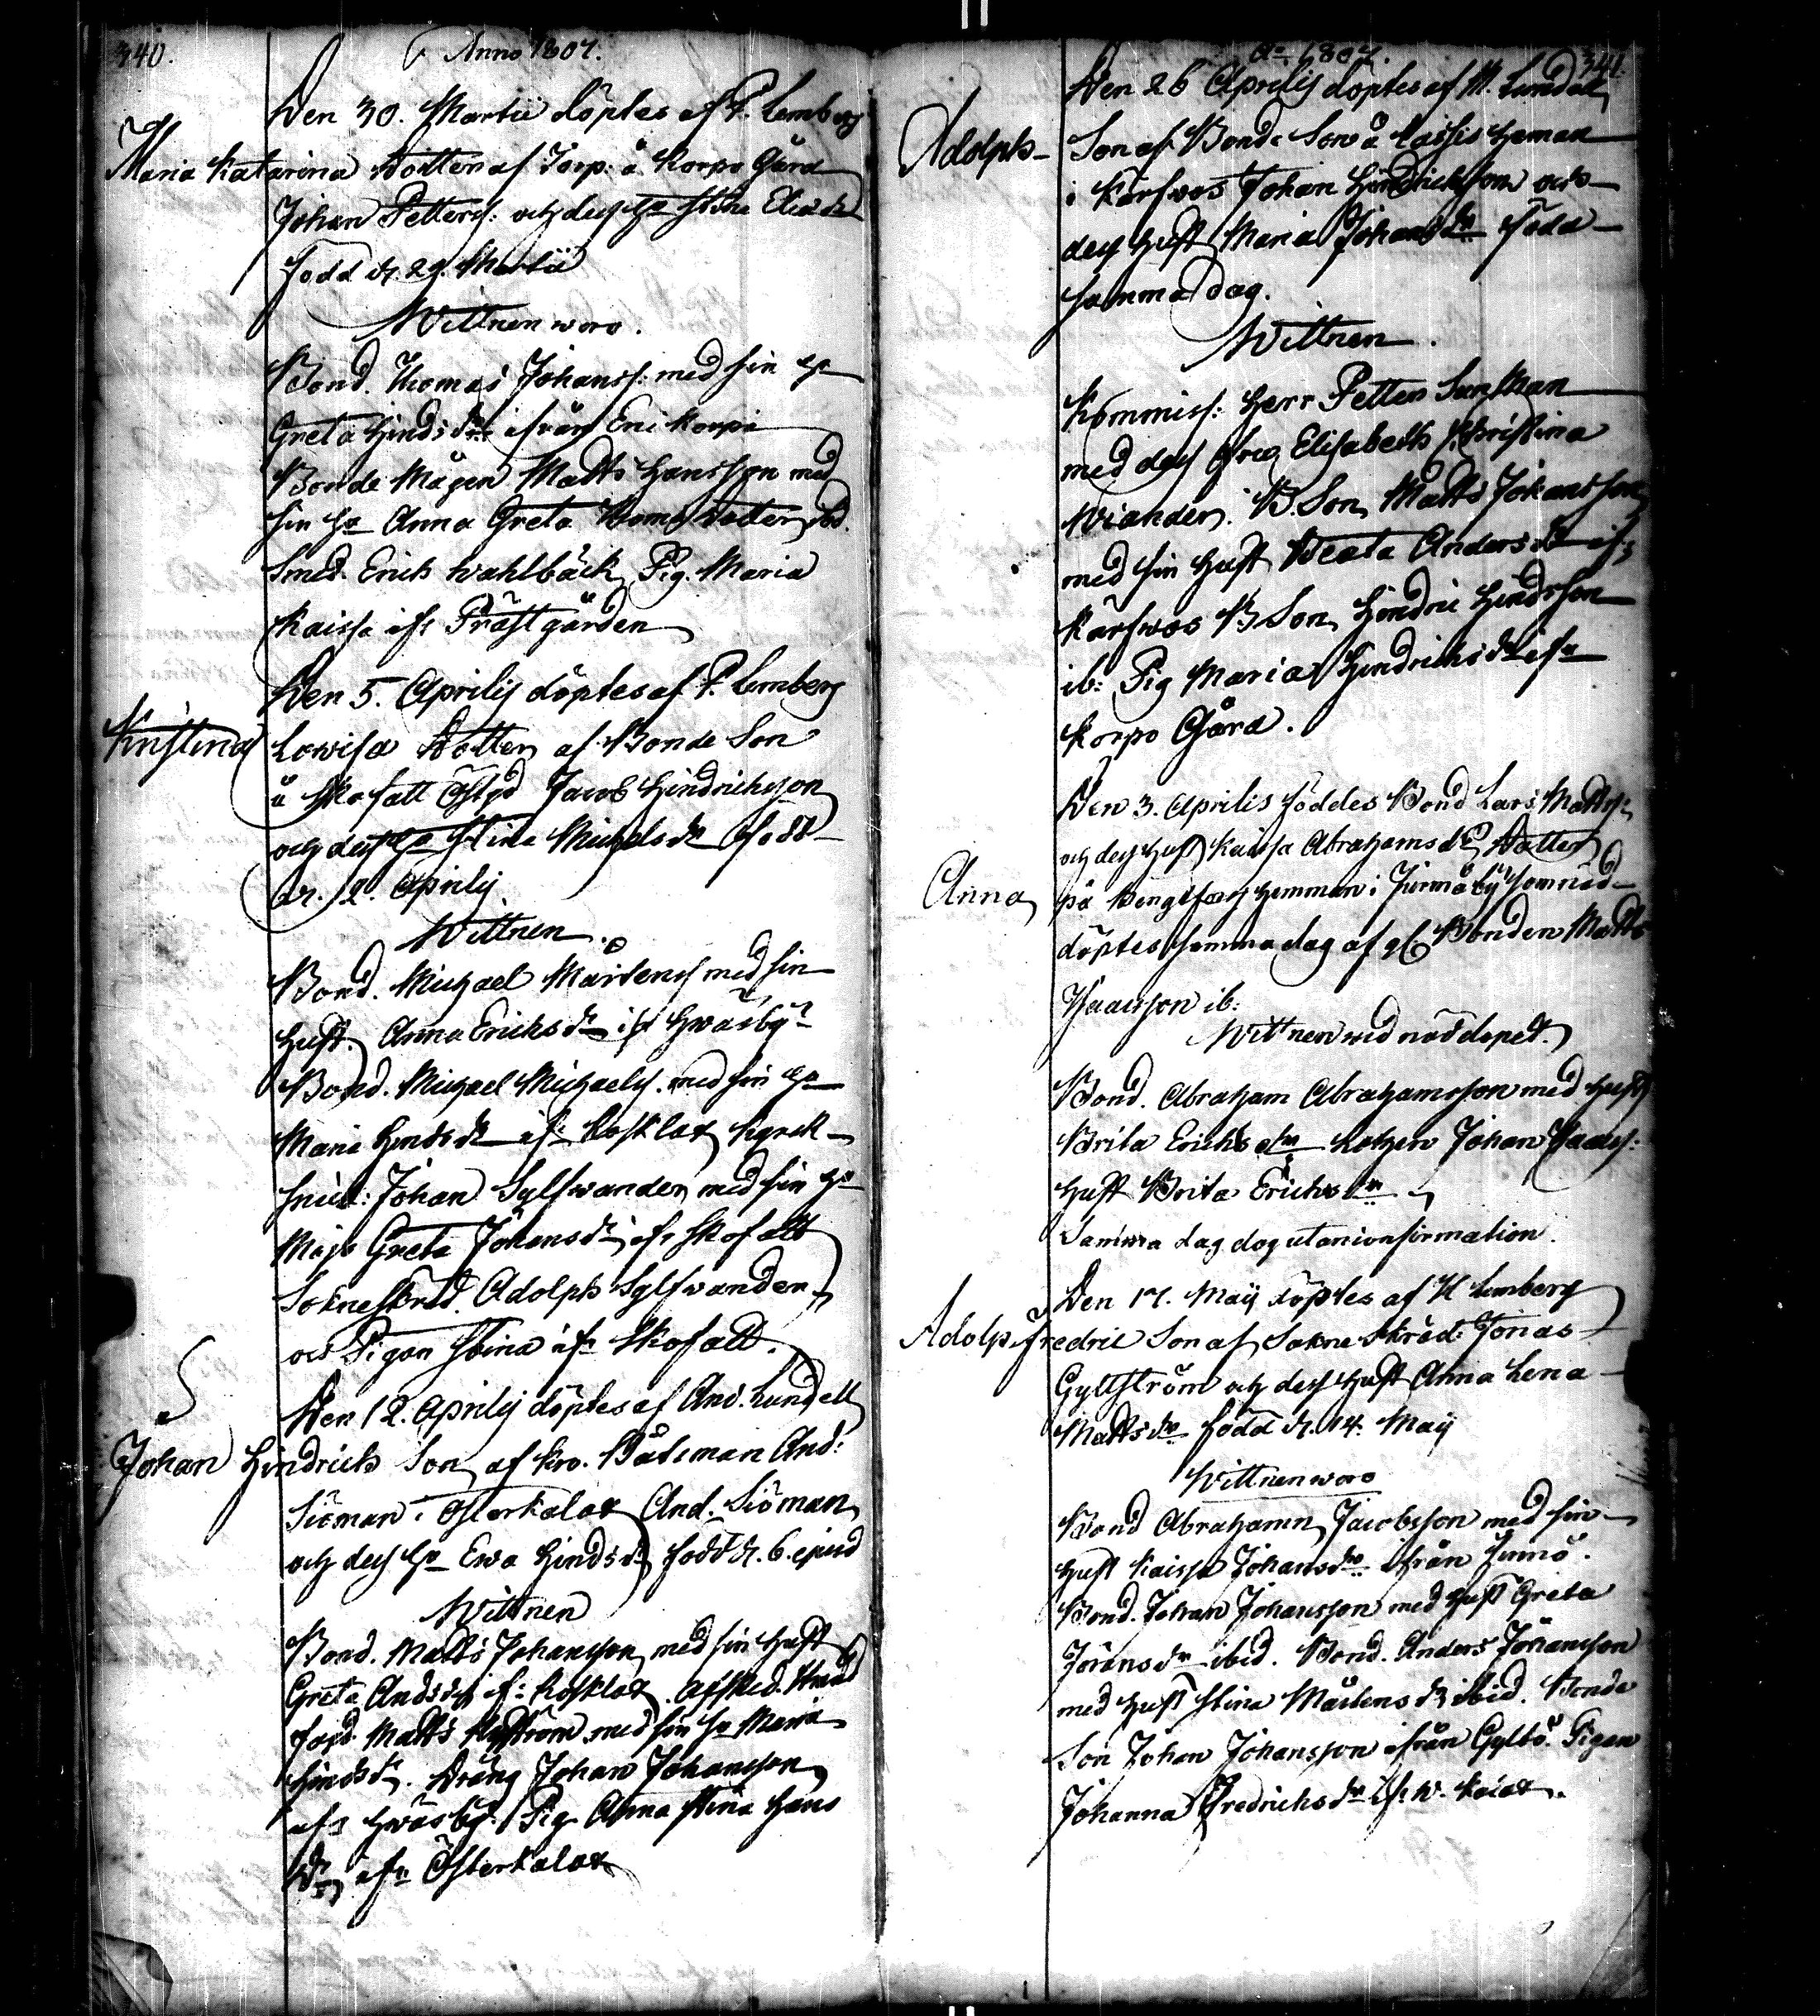 340.
Anno 1807.
Den 30. Martii döptes af P. Lemberg
Maria Katarina Dotter af Torp: å Korpo Gård
Johan Petters: och dess Ha Stina Eliæ dr
Född d. 29. Martii
Wittnen woro.
Bond. Thomas Johanss: med sin Ha
Greta Hindsdr ifrån Erikorpi
Bonde Mågen Matts Hansson med
sin Ha Anna Greta Thoms dotter ibd.
Smed. Erich Wahlbäck, Pig. Maria
Kaissa ifr Prästgården
Den 5. Aprilis döptes af P. Lemberg
Kristina Lowisa Dotter af Bonde Son
å Skofatt Jacob Hindrichsson
och dess Ha Stina Michels dr Född
d. 2. Aprilis
Wittnen.
Bond. Michael Mårtenss med sin
Hust. Anna Erichs dr ifr Hwasby
Bond. Michael Michaels. med sin Ha
Maria Hindsdr ifr Rosklax
Johan Sylfwander med sin Ha
Maja Greta Johansdr ifr Skofatt
Sokneskräd. Adolph Sylfwander
och Pigan Stina ifr Skofatt.
Den 12. Aprilis döptes af And. Lundell
Johan Hindrich Son af Kro. Båtsman And:
Siöman i Österkalax And. Siöman
och dess Ha Ewa Hindsdr född d. 6. ejusd
Wittnen
Bond. Matts Johansson med sin Hust
Greta Andsdr ifr Rosklax. Afsked.
Matts med sin Ha Maria
Hindsdr. Dräng Johan Johansson
ifr Hwasby. Pig. Anna Stina Hans
dr ifr Österkalax
Ao 1807.
341.
Den 26 Aprilis döptes af M. Lundell
Adolph Son af Bonde Son å Lassis Heman
i Kärfwos Johan Hindrichsson och
dess Hust Maria Johansdr Född
samma dag.
Wittnen.
Kommiss: Herr Petter Sunman
med dess Fru Elisabeth Christina
Wiander. B. Son Matts Johansson
med sin Hust Beata Andersdr ifr
Kärfwos B Son Hindric Hindrsson
ib: Pig Maria Hindrichsdr ifr
Korpo Gård.
Den 3. Aprilis föddes Bond Lars Matts:
och dess Hust Kaisa Abrahamsdr Dotter
Anna på Bengtsars Hemman i Jurmo by som nöd-
döptes samma dag af gl Bonden Matts
Isaacsson ib:
Wittnen wid nöddopet.
Bond. Abraham Abrahamsson med Hust
Brita Erichsdr Lotzen Johan Isaacs:
Hust Brita Erichsdr
Samma dag dog utan confirmation.
Den 17. Maij döptes af H Lemberg
Adolp Fredric Son af Sokne Skräd: Jonas
Gyllström och dess Hust Anna Lena
Mattsdr född d. 14. Maij
Wittnen woro
Bond Abraham Jacobsson med sin
Hust Kaisa Johansdr ifrån Jurmo.
Bond. Johan Johansson med Hust Greta
Jöransdr ibid. Bond. Anders Johansson
med Hust Stina Mårtensdr ibid. Bonde
Son Johan Johansson ifrån Gyltö. Pigan
Johanna Fredrichsdr ifr W. Kalax.